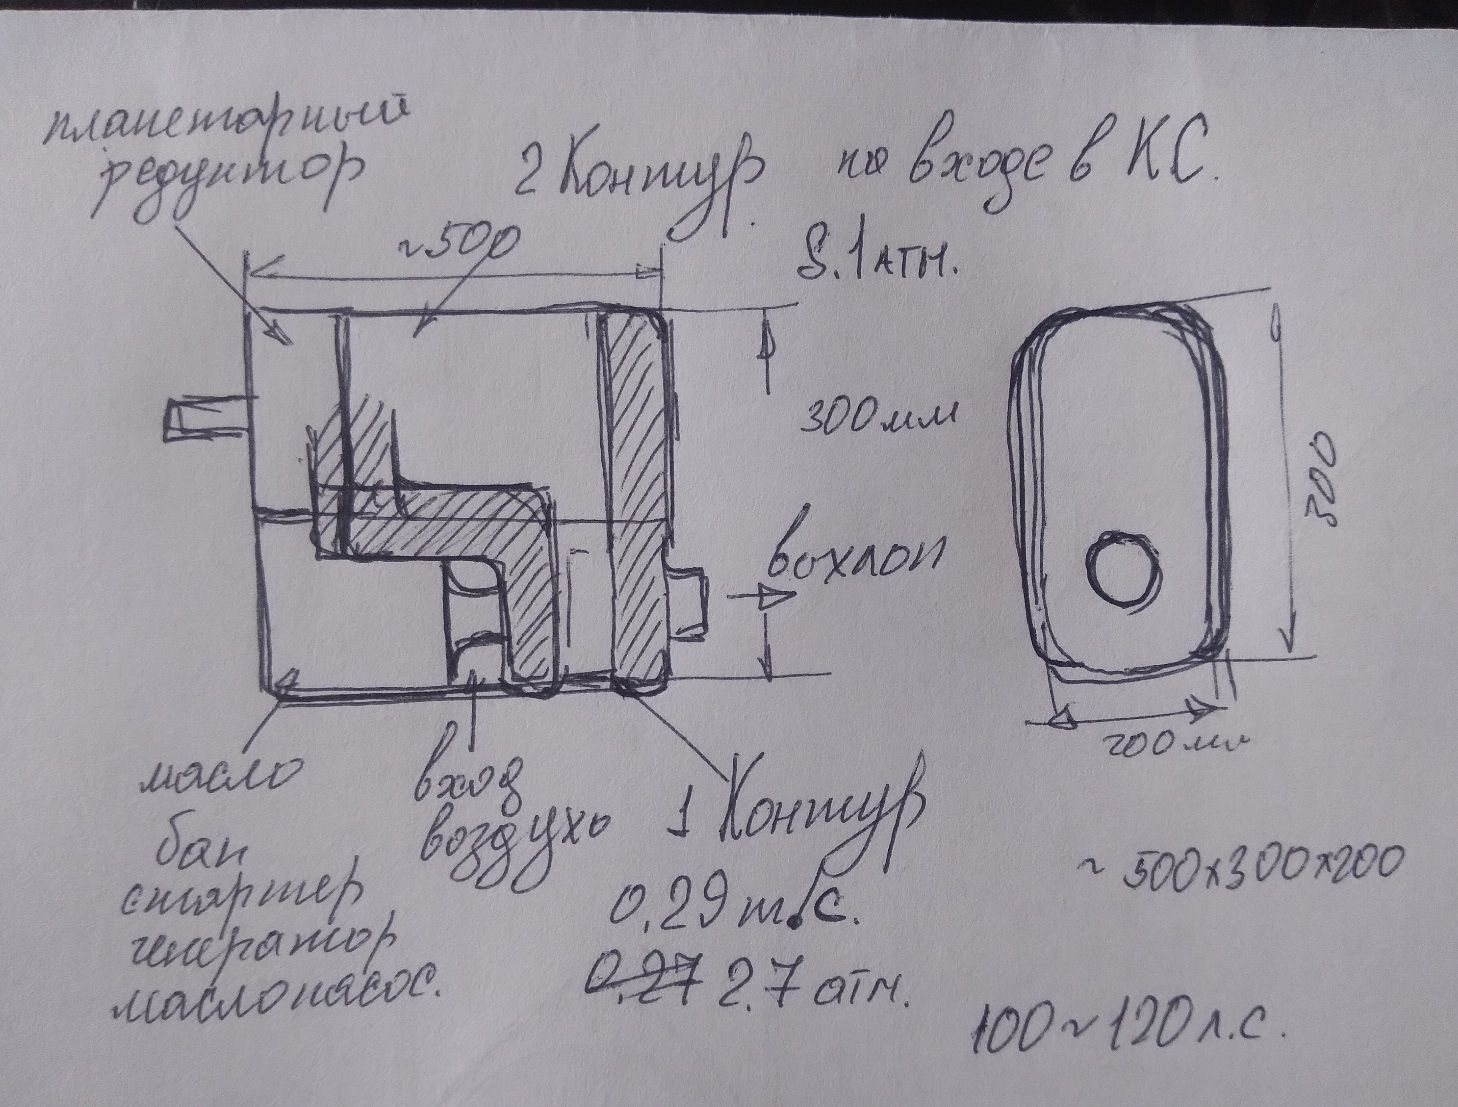 планетарный
редуктор
2 Контур на входе в КС.
8.1 атм.
~500
300мм
300
выхлоп
200мм
масло
бак
стартер
генератор
маслонасос.
вход
воздухь
1 Контур
0.29 т.с.
0.27 2.7 атм.
~ 500х300х200
100~120 л.с.